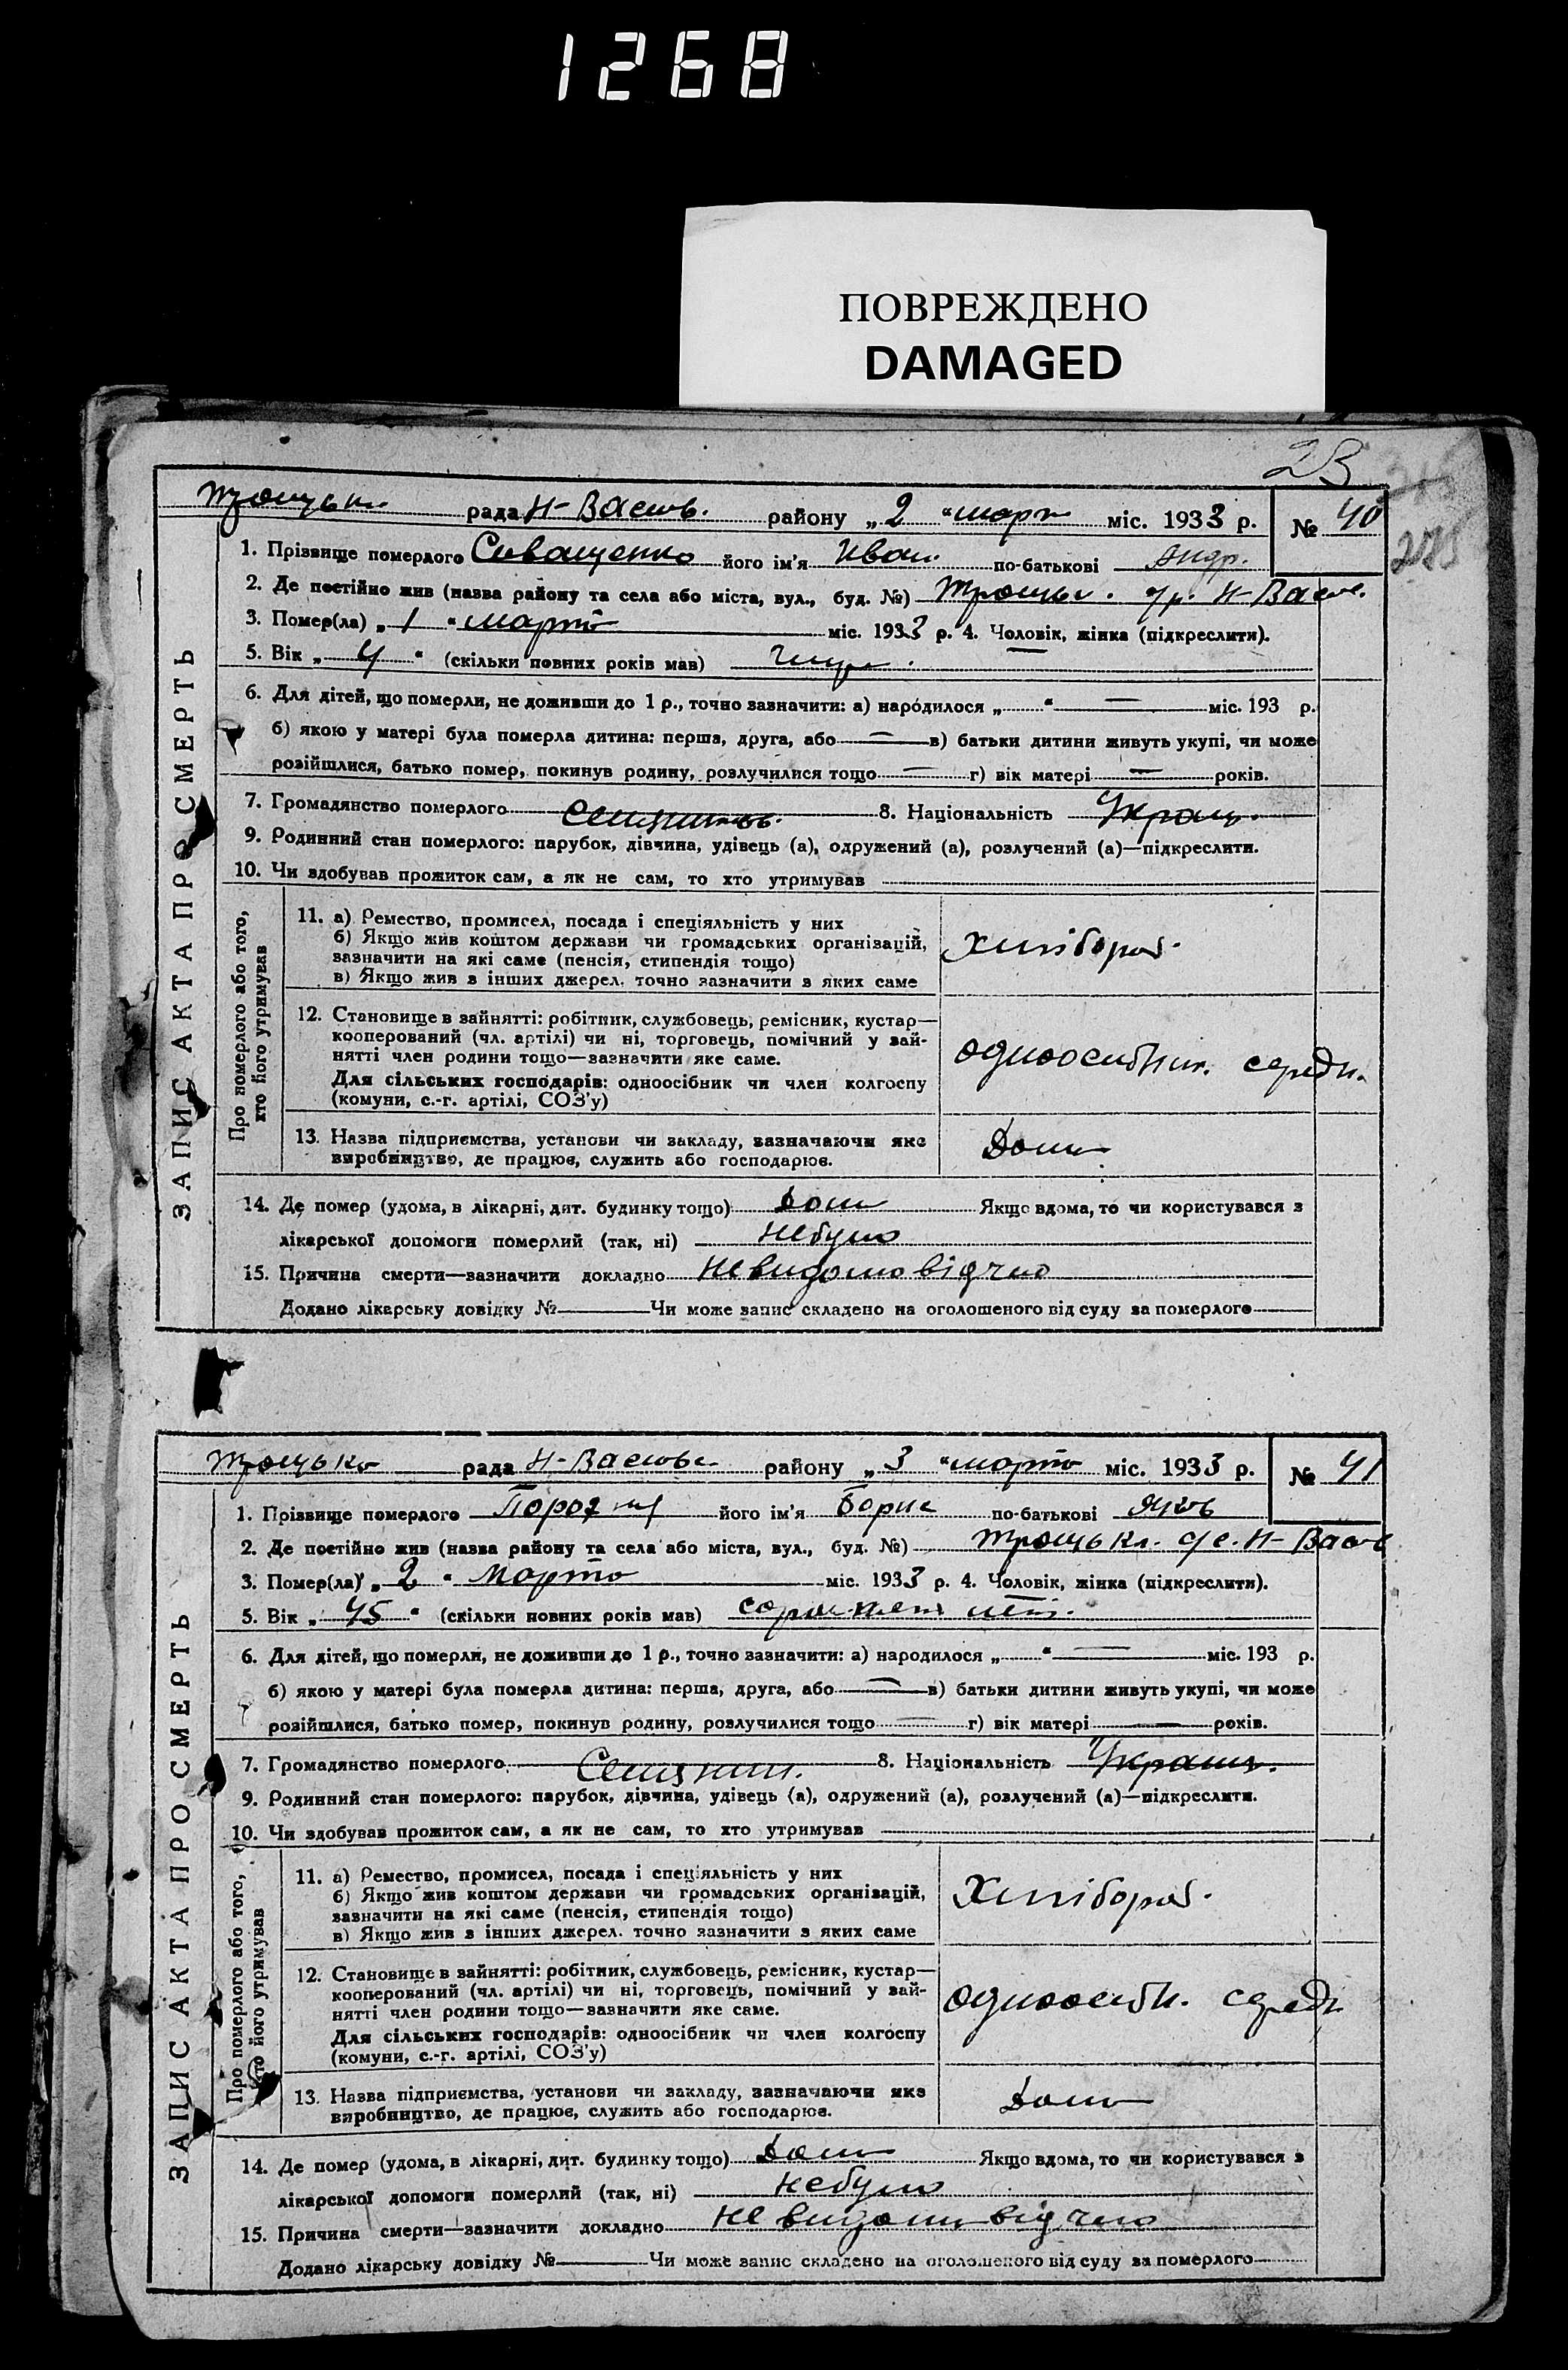 1268
ПОВРЕЖДЕНО
DAMAGED
23
рада Н-Васив. району „2 “ март міс. 1933 р. № 40
285
1. Прізвище померлого Сиващенко його ім'я Иван по-батькові Андр.
2. Де постійно жив (назва району та села або міста, вул., буд. №)
3. Помер(ла) „ 1 “ марта міс. 1933 р. 4. Чоловік, жінка (підкреслити).
5. Вік „ 4 “ (скільки повних років мав)
6. Для дітей, що померли, не доживши до 1 р., точно зазначити: а) народилося „ “ — міс. 193 р.
б) якою у матері була померла дитина: перша, друга, або — в) батьки дитини живуть укупі, чи може
розійшлися, батько помер, покинув родину, розлучилися тощо — г) вік матері — років.
7. Громадянство померлого 8. Національність Украин.
9. Родинний стан померлого: парубок, дівчина, удівець (а), одружений (а), розлучений (а)—підкреслити.
10. Чи здобував прожиток сам, а як не сам, то хто утримував
ЗАПИС АКТА ПРО СМЕРТЬ
Про померлого або того,
хто його утримував
11. а) Ремество, промисел, посада і спеціяльність у них
б) Якщо жив коштом держави чи громадських організацій,
зазначити на які саме (пенсія, стипендія тощо)
в) Якщо жив з інших джерел, точно зазначити з яких саме
хлібороб.
12. Становище в зайнятті: робітник, службовець, ремісник, кустар—
кооперований (чл. артілі) чи ні, торговець, помічний у зай-
нятті член родини тощо—зазначити яке саме.
Для сільських господарів: одноосібник чи член колгоспу
(комуни, с.-г. артілі, СОЗ'у)
одноосибник. середн.
13. Назва підприємства, установи чи закладу, зазначаючи яке
виробництво, де працює, служить або господарює.
Дома
14. Де помер (удома, в лікарні, дит. будинку тощо) Дома Якщо вдома, то чи користувався з
лікарської допомоги померлий (так, ні) небуло
15. Причина смерти—зазначити докладно невидомо відчло
Додано лікарську довідку № — Чи може запис складено на оголошеного від суду за померлого —
рада Н-Васив. району „ 3 “ марта міс. 1933 р. № 41
1. Прізвище померлого його ім'я Борис по-батькові Яков
2. Де постійно жив (назва району та села або міста, вул., буд. №)
3. Помер(ла) „ 2 “ марта міс. 1933 р. 4. Чоловік, жінка (підкреслити).
5. Вік „ 45 “ (скільки повних років мав)
6. Для дітей, що померли, не доживши до 1 р., точно зазначити: а) народилося „ “ — міс. 193 р.
б) якою у матері була померла дитина: перша, друга, або — в) батьки дитини живуть укупі, чи може
розійшлися, батько помер, покинув родину, розлучилися тощо — г) вік матері — років.
7. Громадянство померлого 8. Національність Украин.
9. Родинний стан померлого: парубок, дівчина, удівець (а), одружений (а), розлучений (а)—підкреслити.
10. Чи здобував прожиток сам, а як не сам, то хто утримував
ЗАПИС АКТА ПРО СМЕРТЬ
Про померлого або того,
хто його утримував
11. а) Ремество, промисел, посада і спеціяльність у них
б) Якщо жив коштом держави чи громадських організацій,
зазначити на які саме (пенсія, стипендія тощо)
в) Якщо жив з інших джерел, точно зазначити з яких саме
Хлібороб.
12. Становище в зайнятті: робітник, службовець, ремісник, кустар—
кооперований (чл. артілі) чи ні, торговець, помічний у зай-
нятті член родини тощо—зазначити яке саме.
Для сільських господарів: одноосібник чи член колгоспу
(комуни, с.-г. артілі, СОЗ'у)
одноосибн. середн
13. Назва підприємства, установи чи закладу, зазначаючи яке
виробництво, де працює, служить або господарює.
Дома
14. Де помер (удома, в лікарні, дит. будинку тощо) Дома Якщо вдома, то чи користувався з
лікарської допомоги померлий (так, ні) небуло
15. Причина смерти—зазначити докладно невидомо відчло
Додано лікарську довідку № — Чи може запис складено на оголошеного від суду за померлого —